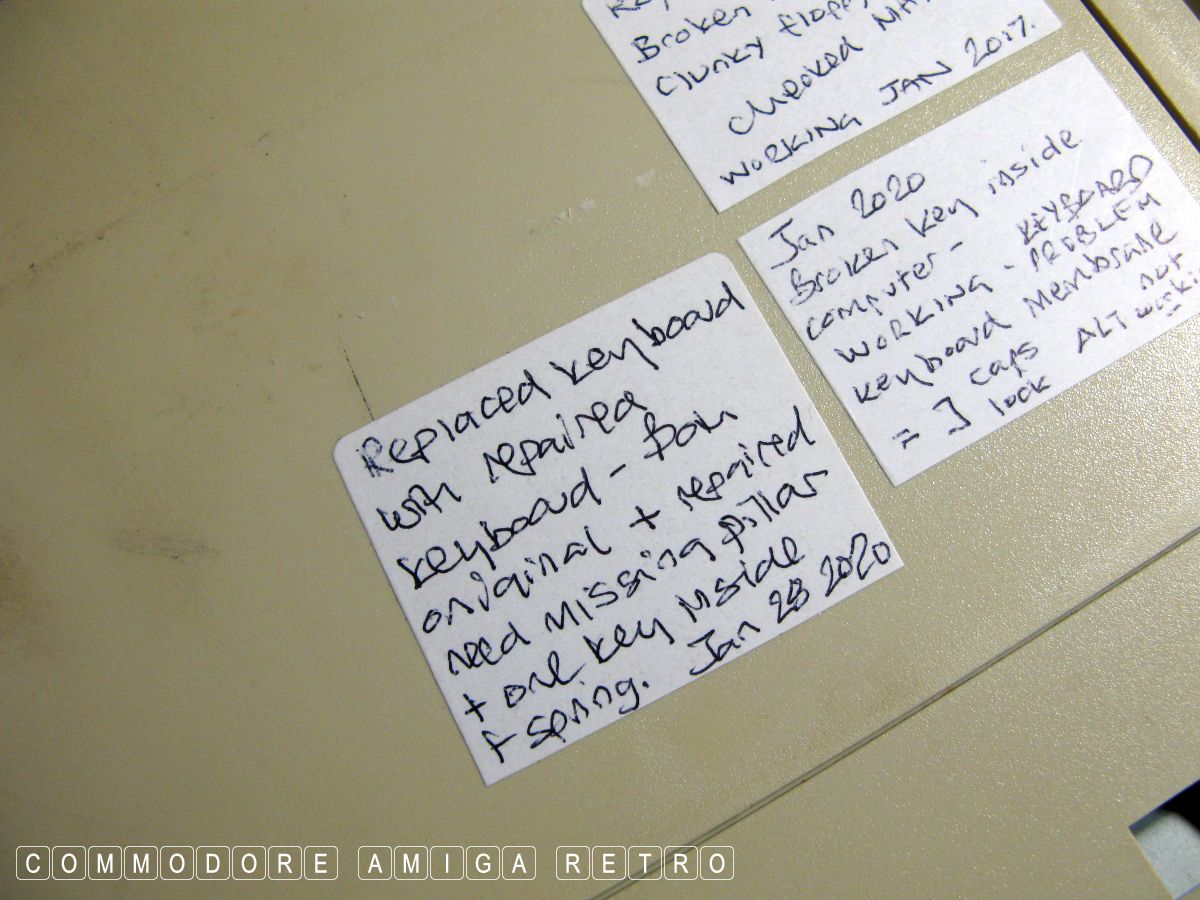 Broken
Clunky floppy
checked
WORKING JAN 2017.
Jan 2020
Broken key inside
computer -
WORKING - KEYBOARD PROBLEM
keyboard Membrane
= ] caps lock ALT not
Replaced keyboard
with repaired
keyboard - Both
original + repaired
need missing pillar
+ one key inside
+ spring. Jan 28 2020
COMMODORE AMIGA RETRO